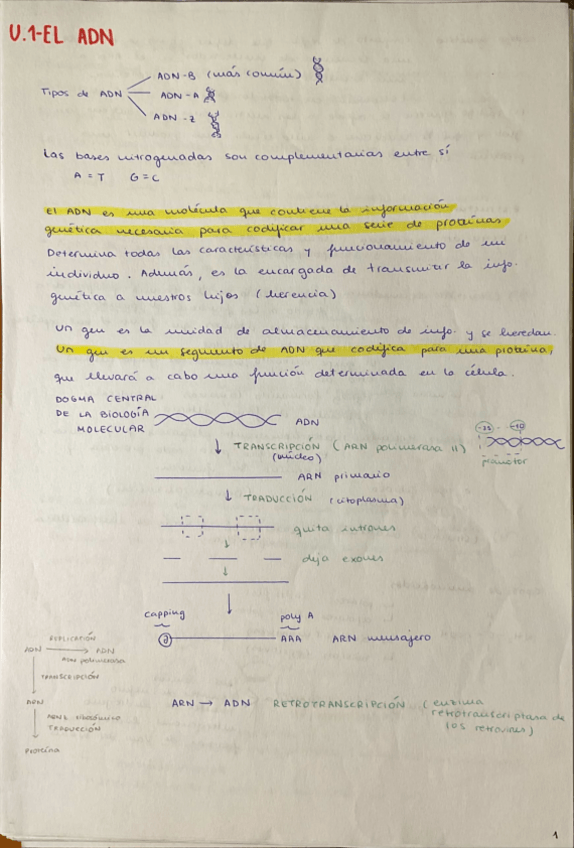 U.1-EL ADN
Tipos de ADN
ADN-B (más común)
ADN-A
ADN-Z
Las bases nitrogenadas son complementarias entre sí
A = T G = C
El ADN es una molécula que contiene la información
genética necesaria para codificar una serie de proteínas
Determina todas las características y funcionamiento de un
individuo. Además, es la encargada de transmitir la info.
genética a nuestros hijos (herencia)
Un gen es la unidad de almacenamiento de info. y se heredan.
Un gen es un segmento de ADN que codifica para una proteína,
que llevará a cabo una función determinada en la célula.
DOGMA CENTRAL
DE LA BIOLOGÍA
MOLECULAR
ADN
-35 -10
promotor
↓ TRANSCRIPCIÓN (ARN polimerasa II)
(núcleo)
ARN primario
↓ TRADUCCIÓN (citoplasma)
quita intrones
deja exones
capping poly A
AAA ARN mensajero
REPLICACIÓN
ADN → ADN
ADN polimerasa
TRANSCRIPCIÓN
ARN
TRADUCCIÓN
Proteína
ARN → ADN RETROTRANSCRIPCIÓN (enzima
retrotranscriptasa de
los retrovirus)
1